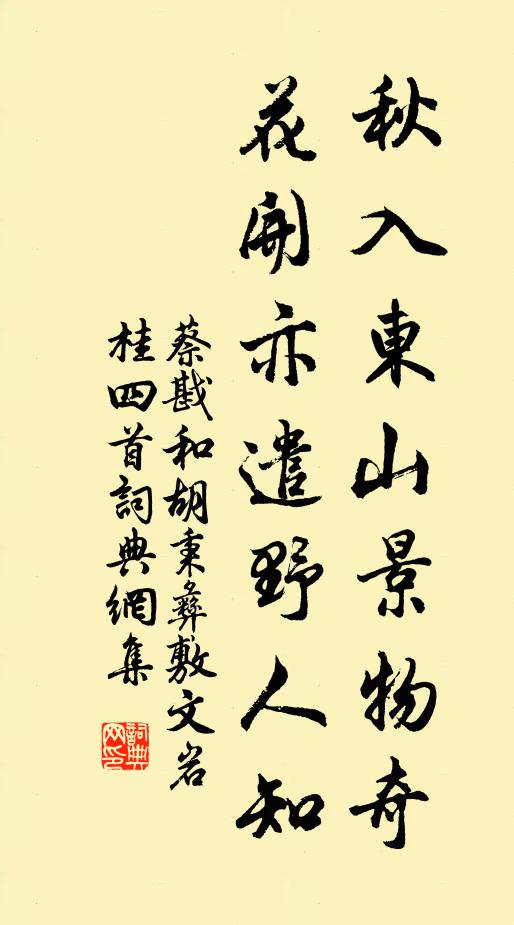 秋入東山景物奇
花開亦遣野人知
蔡戡和胡秉彝敷文岩
桂四首詞典網集
詞典
网印